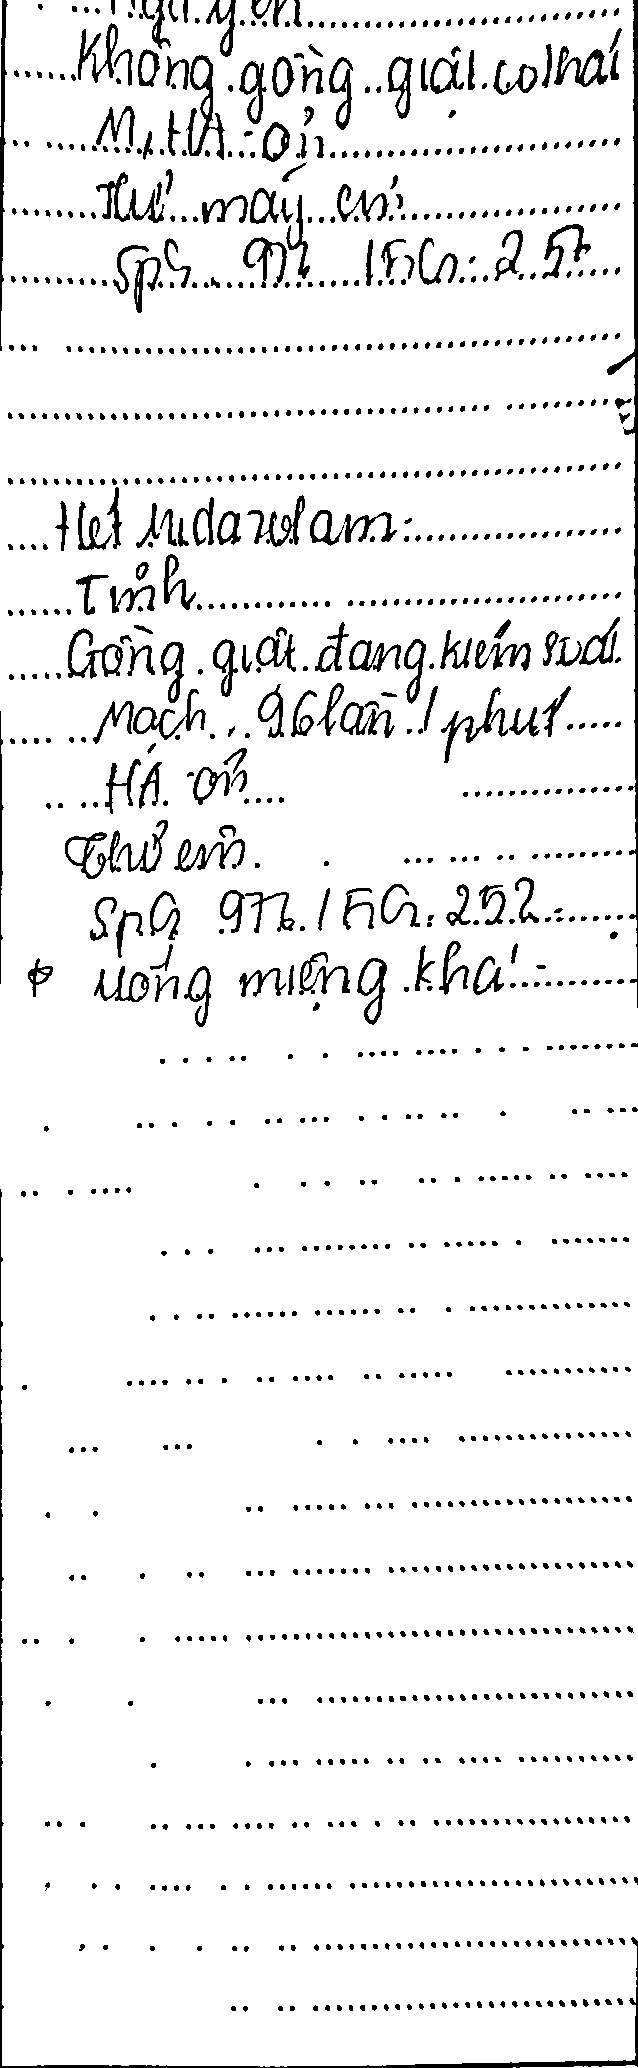 Không gồng giật co thắt
M, HA: ổn
Thở máy êm
SpO2 97% / FiO2: 25%
Hết Midazolam:
Tỉnh
Gồng giật đang kiểm soát
Mạch 96 lần / phút
HA ổn
Thở êm
SpO2 97% / FiO2: 25%
Uống miệng khá